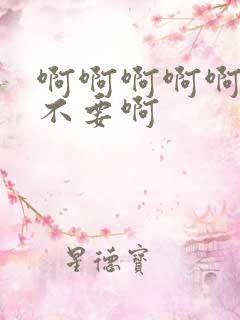 啊啊啊啊啊
不要啊
星德宝